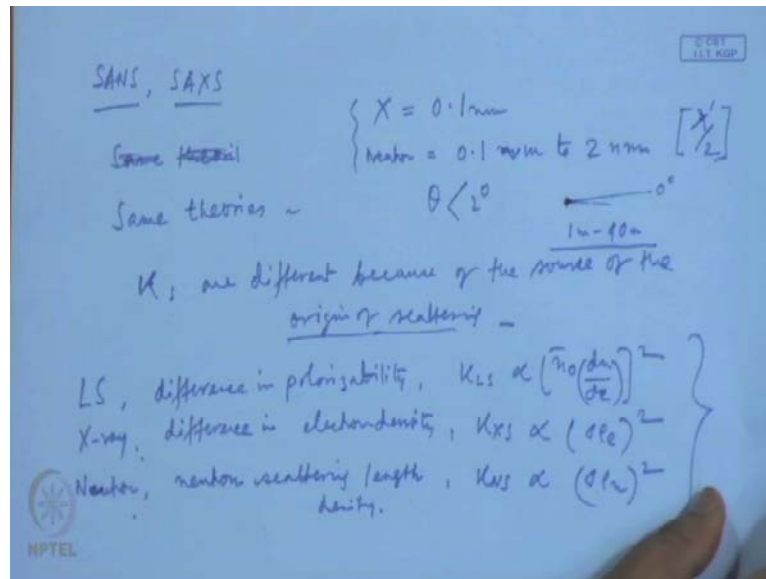 © CET
I.I.T. KGP
SANS, SAXS
X = 0.1 nm
Neutron = 0.1 nm to 2 nm [λ/2]
Same theories ~
θ < 2° 0°
1m-40m
K, are different because of the source of the
origin of scattering -
LS, difference in polarizability, K_LS ∝ [n₀(dn/dc)]²
X-ray, difference in electron density, K_XS ∝ (δρ_e)²
Neutron, neutron scattering length density, K_NS ∝ (δρ_n)²
NPTEL